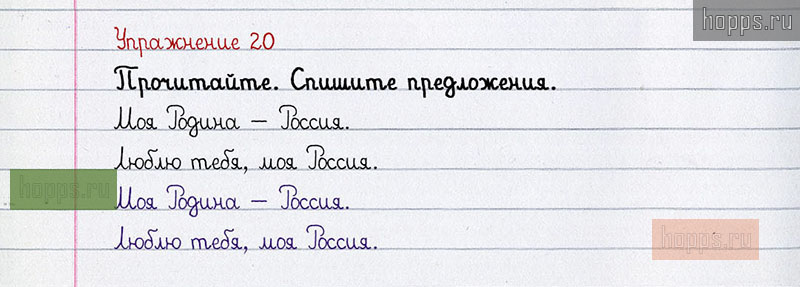 hopps.ru
Упражнение 20
Прочитайте. Спишите предложения.
Моя Родина – Россия.
Люблю тебя, моя Россия.
hopps.ru
Моя Родина – Россия.
Люблю тебя, моя Россия.
hopps.ru